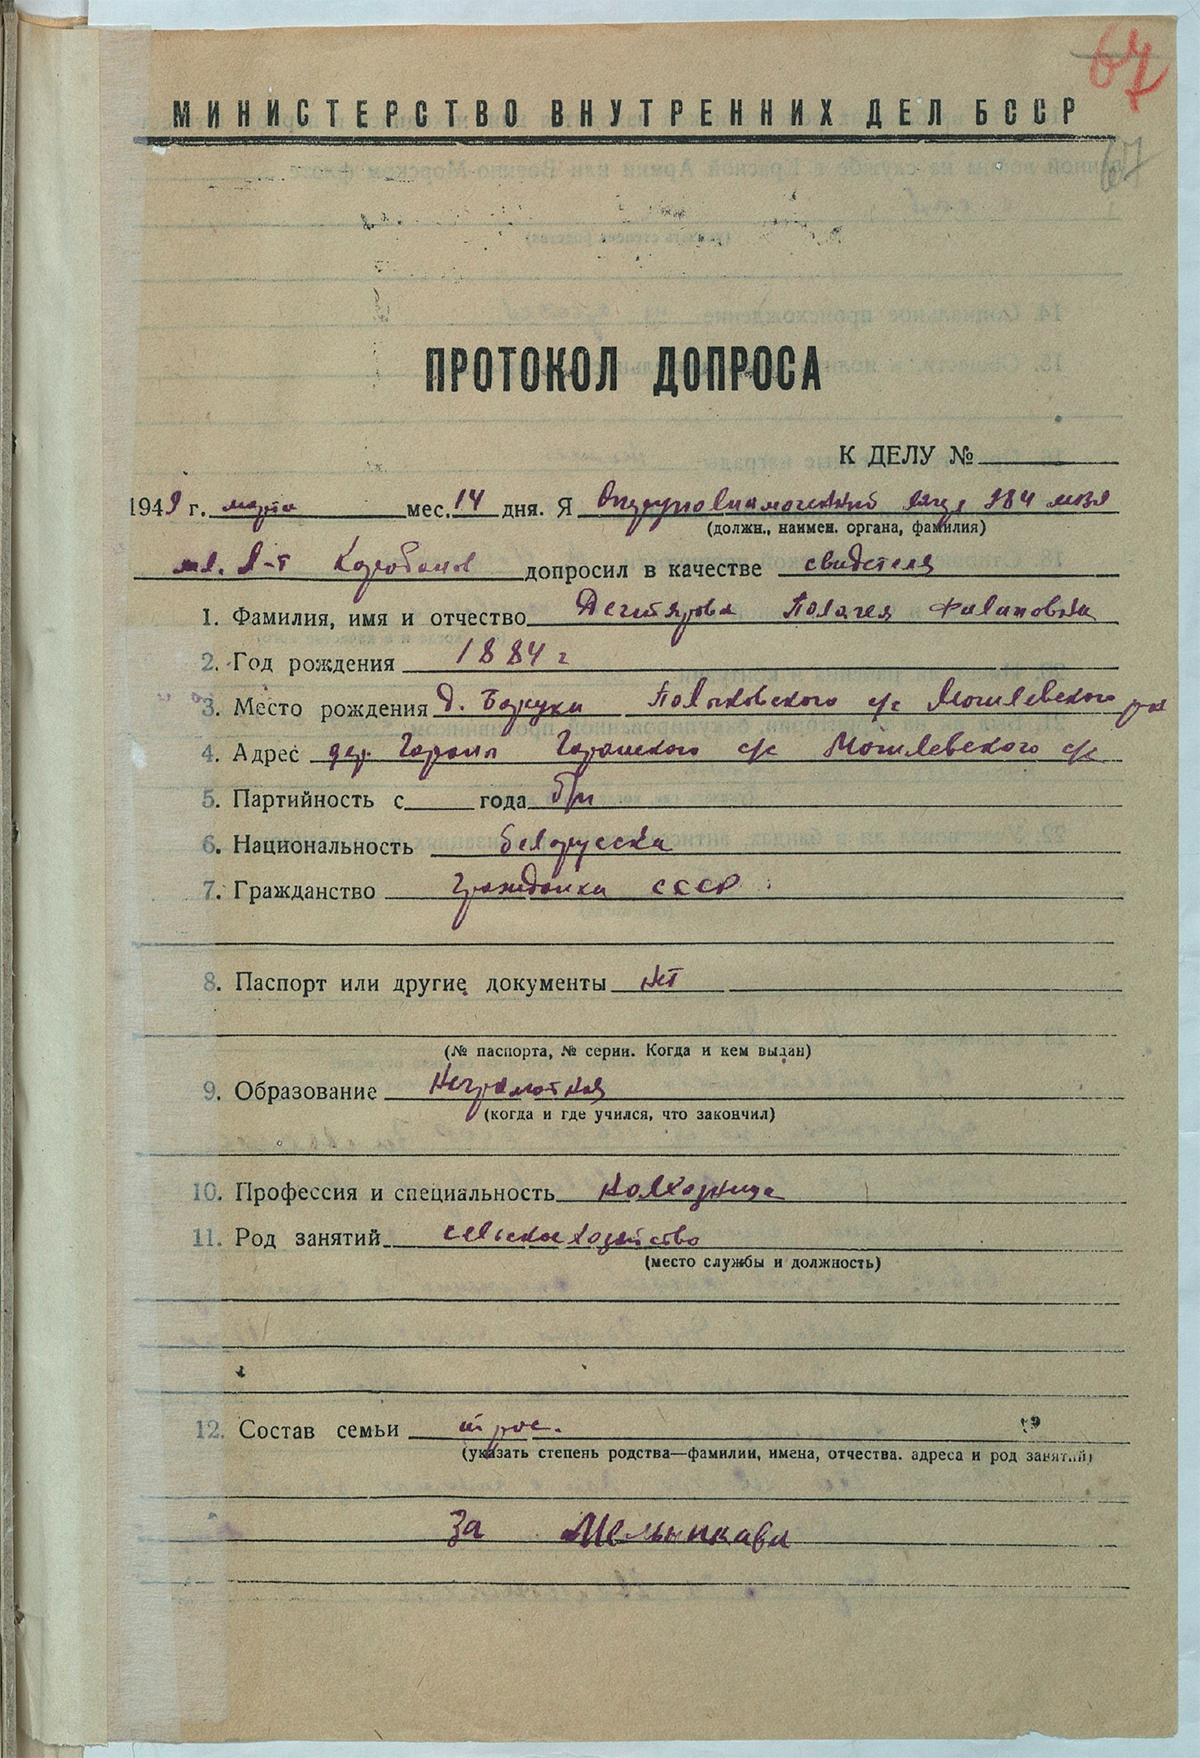 67
МИНИСТЕРСТВО ВНУТРЕННИХ ДЕЛ БССР
67
ПРОТОКОЛ ДОПРОСА
К ДЕЛУ №
1949 г. марта мес. 14 дня. Я Оперуполномоченный 284
(должн., наимен. органа, фамилия)
мл. л-т Коробанов допросил в качестве свидетеля
1. Фамилия, имя и отчество Дегтярова Полагея Филиповна
2. Год рождения 1884 г
3. Место рождения д. Бокуки Полыковского с/с Могилевского р-на
4. Адрес дер. с/с Могилевского с/с
5. Партийность с года б/п
6. Национальность белоруска
7. Гражданство гражданка СССР
8. Паспорт или другие документы нет
(№ паспорта, № серии. Когда и кем выдан)
9. Образование Неграмотная
(когда и где учился, что закончил)
10. Профессия и специальность колхозница
11. Род занятий сельское хозяйство
(место службы и должность)
12. Состав семьи трое.
(указать степень родства—фамилии, имена, отчества. адреса и род занятий)
За